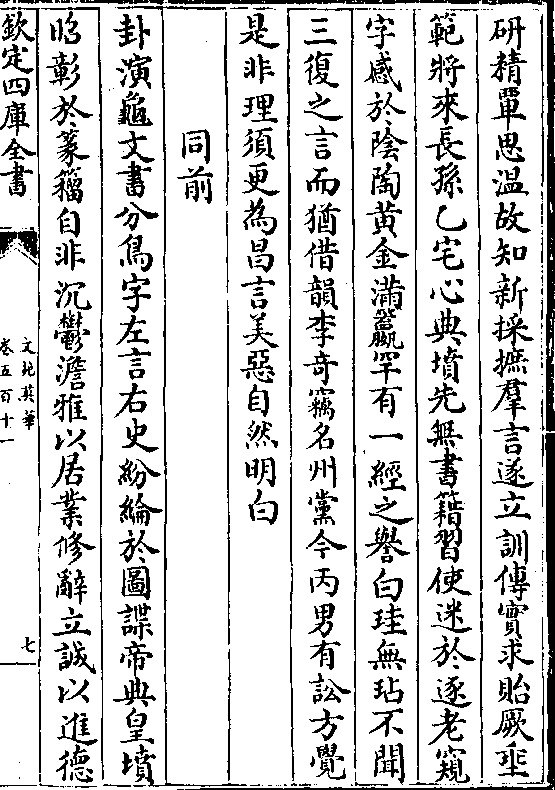 研精覃思温故知新採摭羣言遂立訓傳實求貽厥垂
範將來長孫乙宅心典墳先無書籍習使迷於逐老窺
字感於陰陶黄金滿籯罕有一經之譽白珪無玷不聞
三復之言而猶借韻李竒竊名州黨今丙男有訟方覺
是非理須更為昌言美惡自然明白
同前
卦演龜文書分鳥字左言右史紛綸於圖諜帝典皇墳
昭彰於篆籀自非沉鬱澹雅以居業修辭立誠以進德
欽定四庫全書
文苑英華
卷五百十一
七